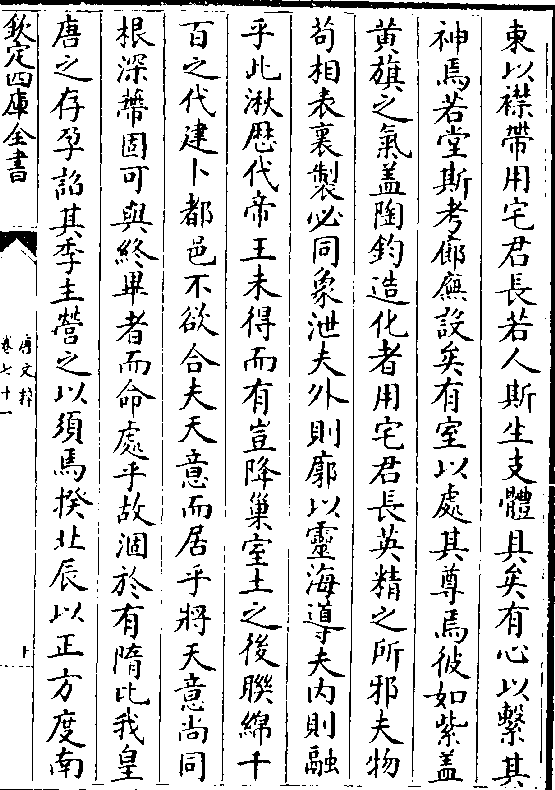 東以襟帶用宅君長若人斯生支體具矣有心以繫其
神焉若堂斯考廊廡設矣有室以處其尊焉彼如紫蓋
黄旗之氣盖陶鈞造化者用宅君長英精之所邪夫物
苟相表裏製必同象泄夫外則廓以靈海導夫内則融
乎此湫歴代帝王未得而有豈降巢室土之後聨綿千
百之代建卜都邑不欲合夫天意而居乎將天意尚同
根深蔕固可與終畢者而命處乎故涸於有隋比我皇
唐之存孕諂其季主營之以須焉揆北辰以正方度南
欽定四庫全書
唐文粹
卷七十一